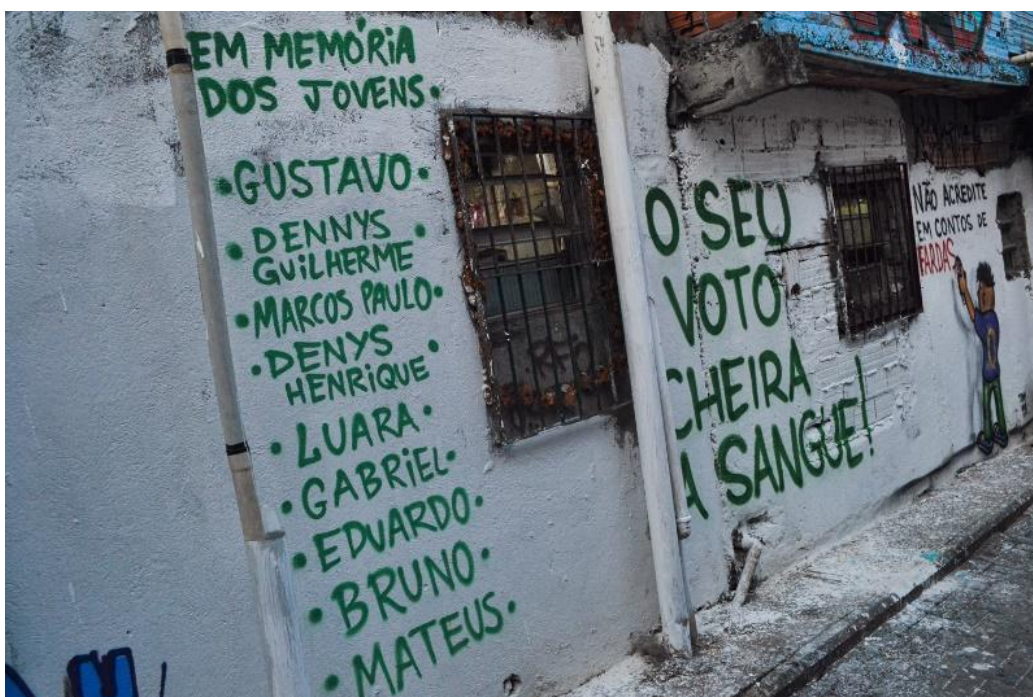 EM MEMÓRIA
DOS JOVENS.
•GUSTAVO•
•DENNYS
GUILHERME
•MARCOS PAULO•
•DENYS
HENRIQUE•
•LUARA•
•GABRIEL•
•EDUARDO•
•BRUNO•
•MATEUS•
O SEU
VOTO
CHEIRA
A SANGUE!
NÃO ACREDITE
EM CONTOS DE
FARDAS